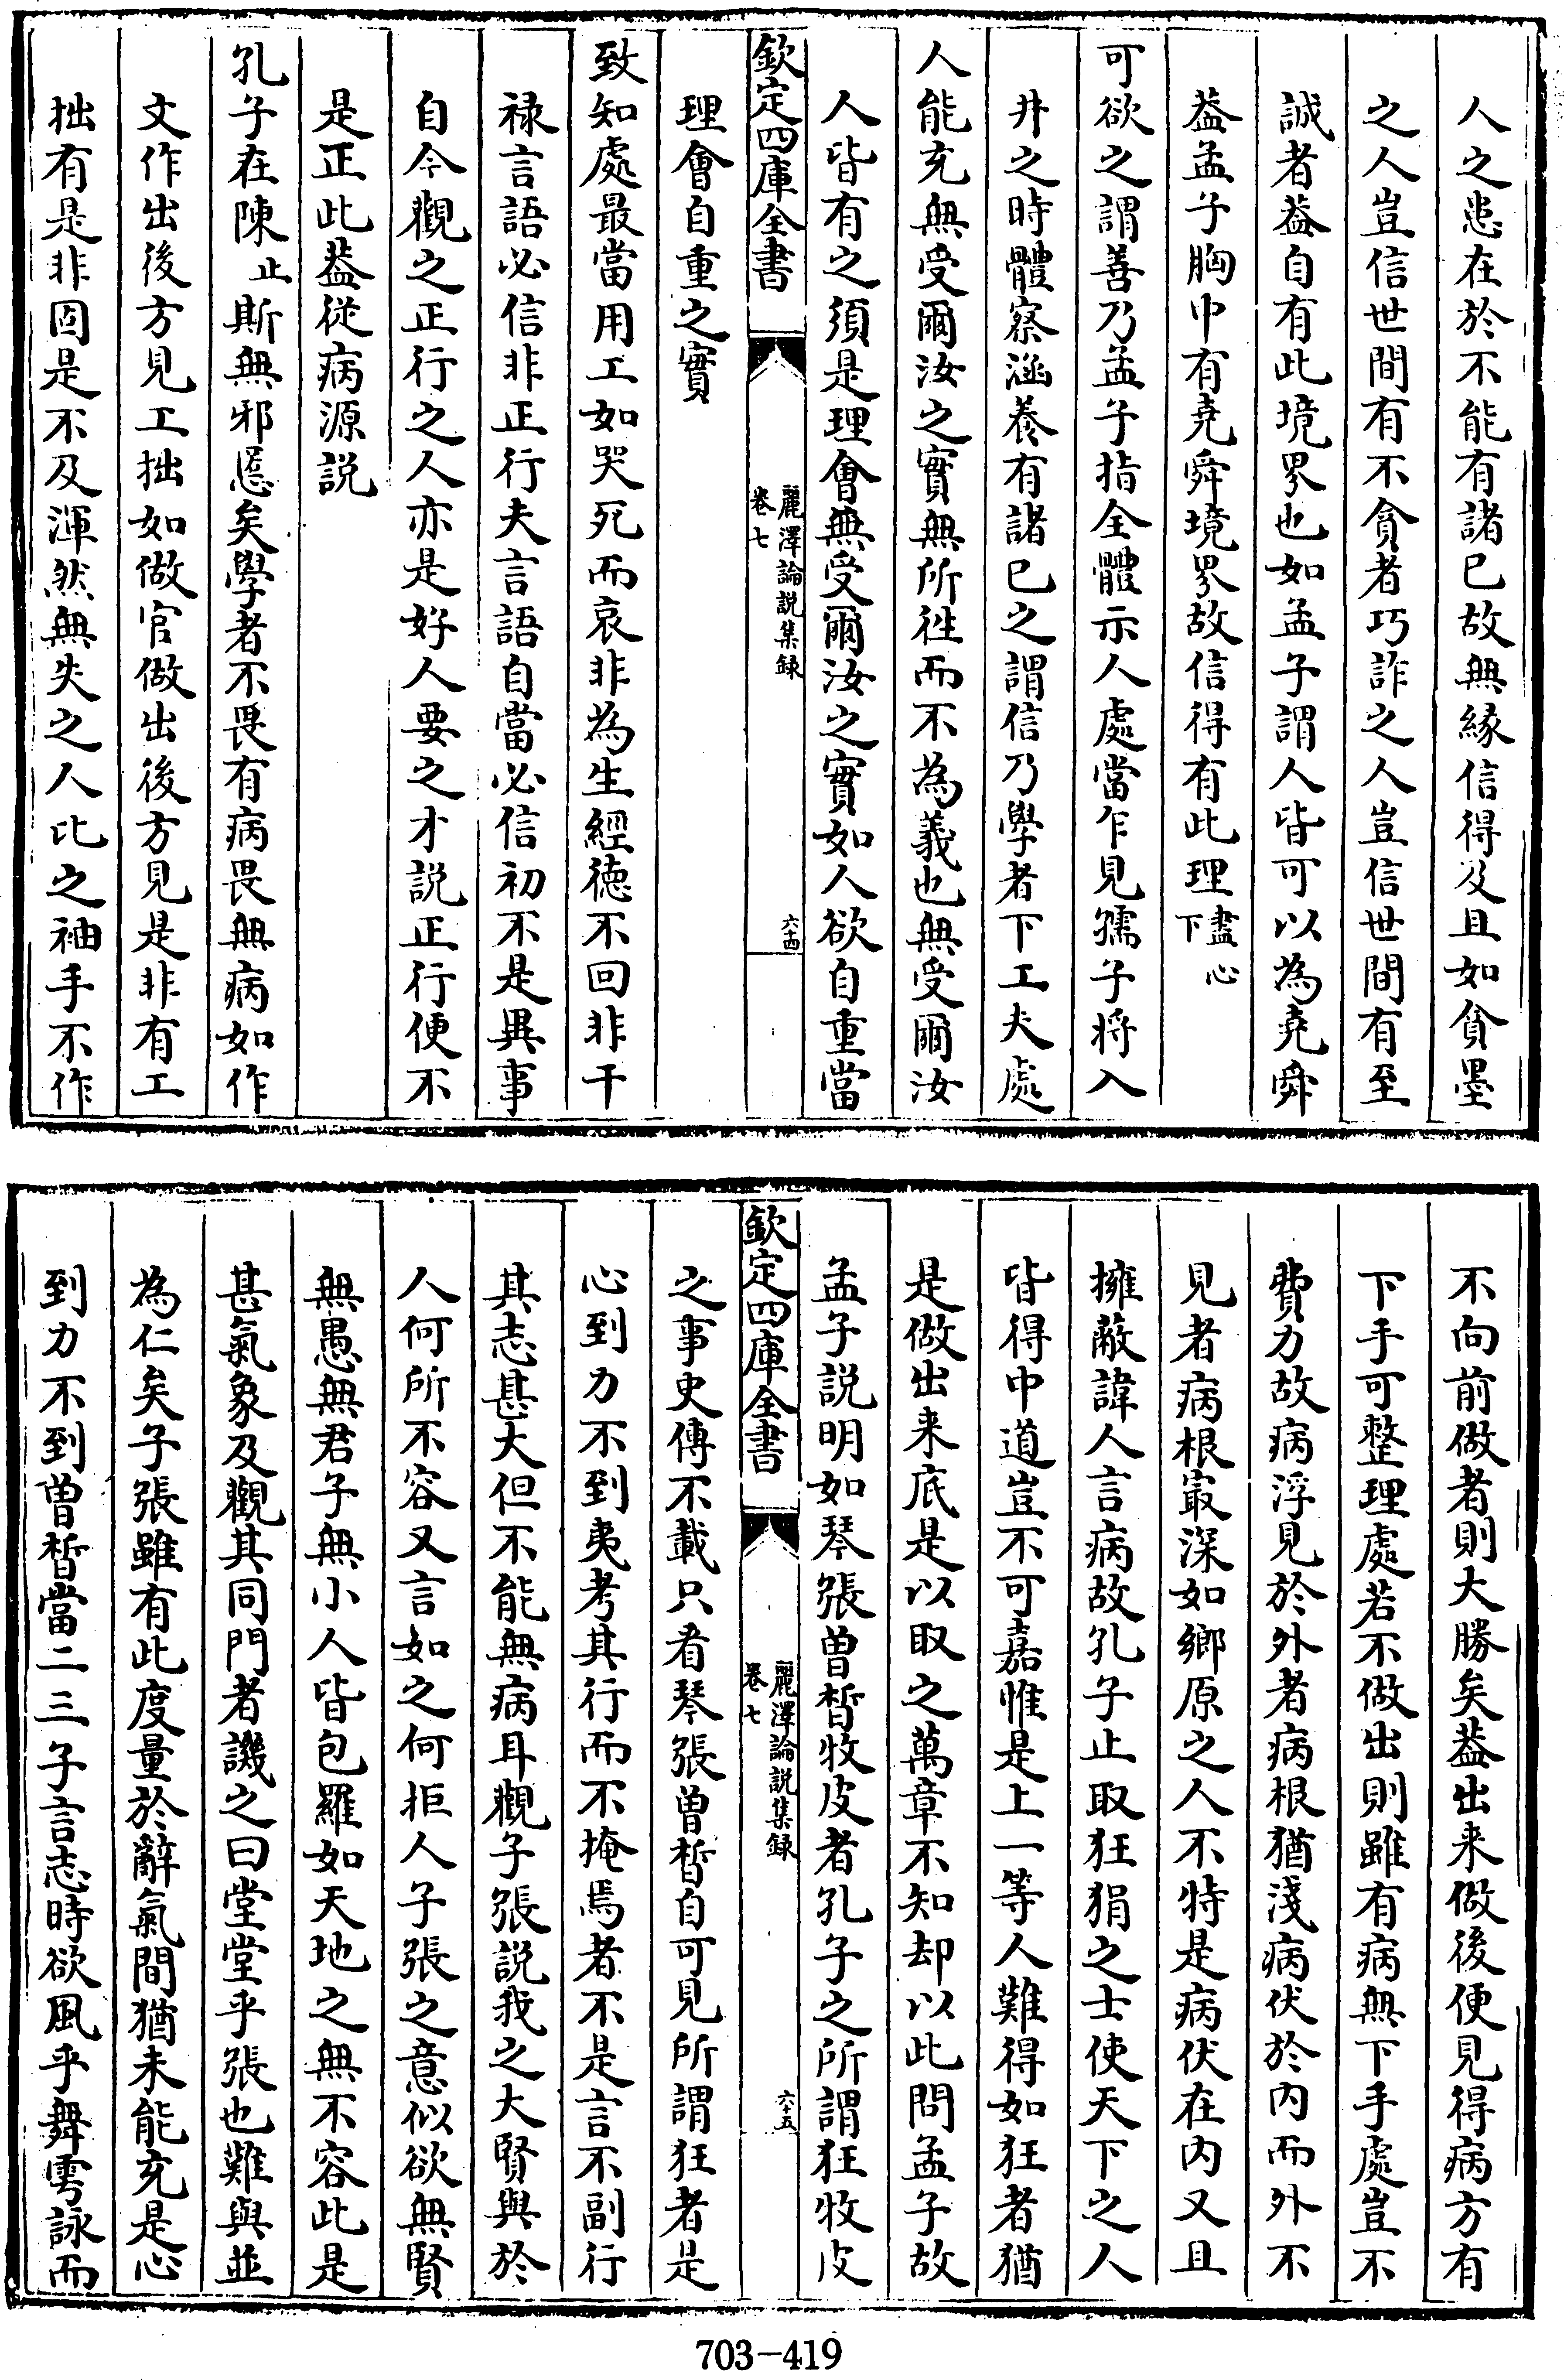 人之患在於不能有諸已故無緣信得及且如貪墨
之人豈信世間有不貪者巧詐之人豈信世間有至
誠者葢自有此境界也如孟子謂人皆可以為堯舜
葢孟子胸中有堯舜境界故信得有此理盡心下
可欲之謂善乃孟子指全體示人處當乍見孺子將入
井之時體察涵養有諸已之謂信乃學者下工夫處
人能充無受爾汝之實無所徃而不為義也無受爾汝
人皆有之須是理會無受爾汝之實如人欲自重當
欽定四庫全書
麗澤論説集録
卷七
六十四
理會自重之實
致知處最當用工如哭死而哀非為生經德不回非干
禄言語必信非正行夫言語自當必信初不是異事
自今觀之正行之人亦是好人要之才説正行便不
是正此葢從病源説
孔子在陳止斯無邪慝矣學者不畏有病畏無病如作
文作出後方見工拙如做官做出後方見是非有工
拙有是非固是不及渾然無失之人比之袖手不作
不向前做者則大勝矣葢出来做後便見得病方有
下手可整理處若不做出則雖有病無下手處豈不
費力故病浮見於外者病根猶淺病伏於内而外不
見者病根㝡深如鄉原之人不特是病伏在内又且
擁蔽諱人言病故孔子止取狂狷之士使天下之人
皆得中道豈不可嘉惟是上一等人難得如狂者猶
是做出来底是以取之萬章不知却以此問孟子故
孟子説明如琴張曾晳牧皮者孔子之所謂狂牧皮
欽定四庫全書
麗澤論説集録
卷七
六十五
之事史傳不載只看琴張曾晳自可見所謂狂者是
心到力不到夷考其行而不掩焉者不是言不副行
其志甚大但不能無病耳觀子張説我之大賢與於
人何所不容又言如之何拒人子張之意似欲無賢
無愚無君子無小人皆包羅如天地之無不容此是
甚氣象及觀其同門者譏之曰堂堂乎張也難與並
為仁矣子張雖有此度量於辭氣間猶未能充是心
到力不到曾晳當二三子言志時欲風乎舞雩詠而
703-419